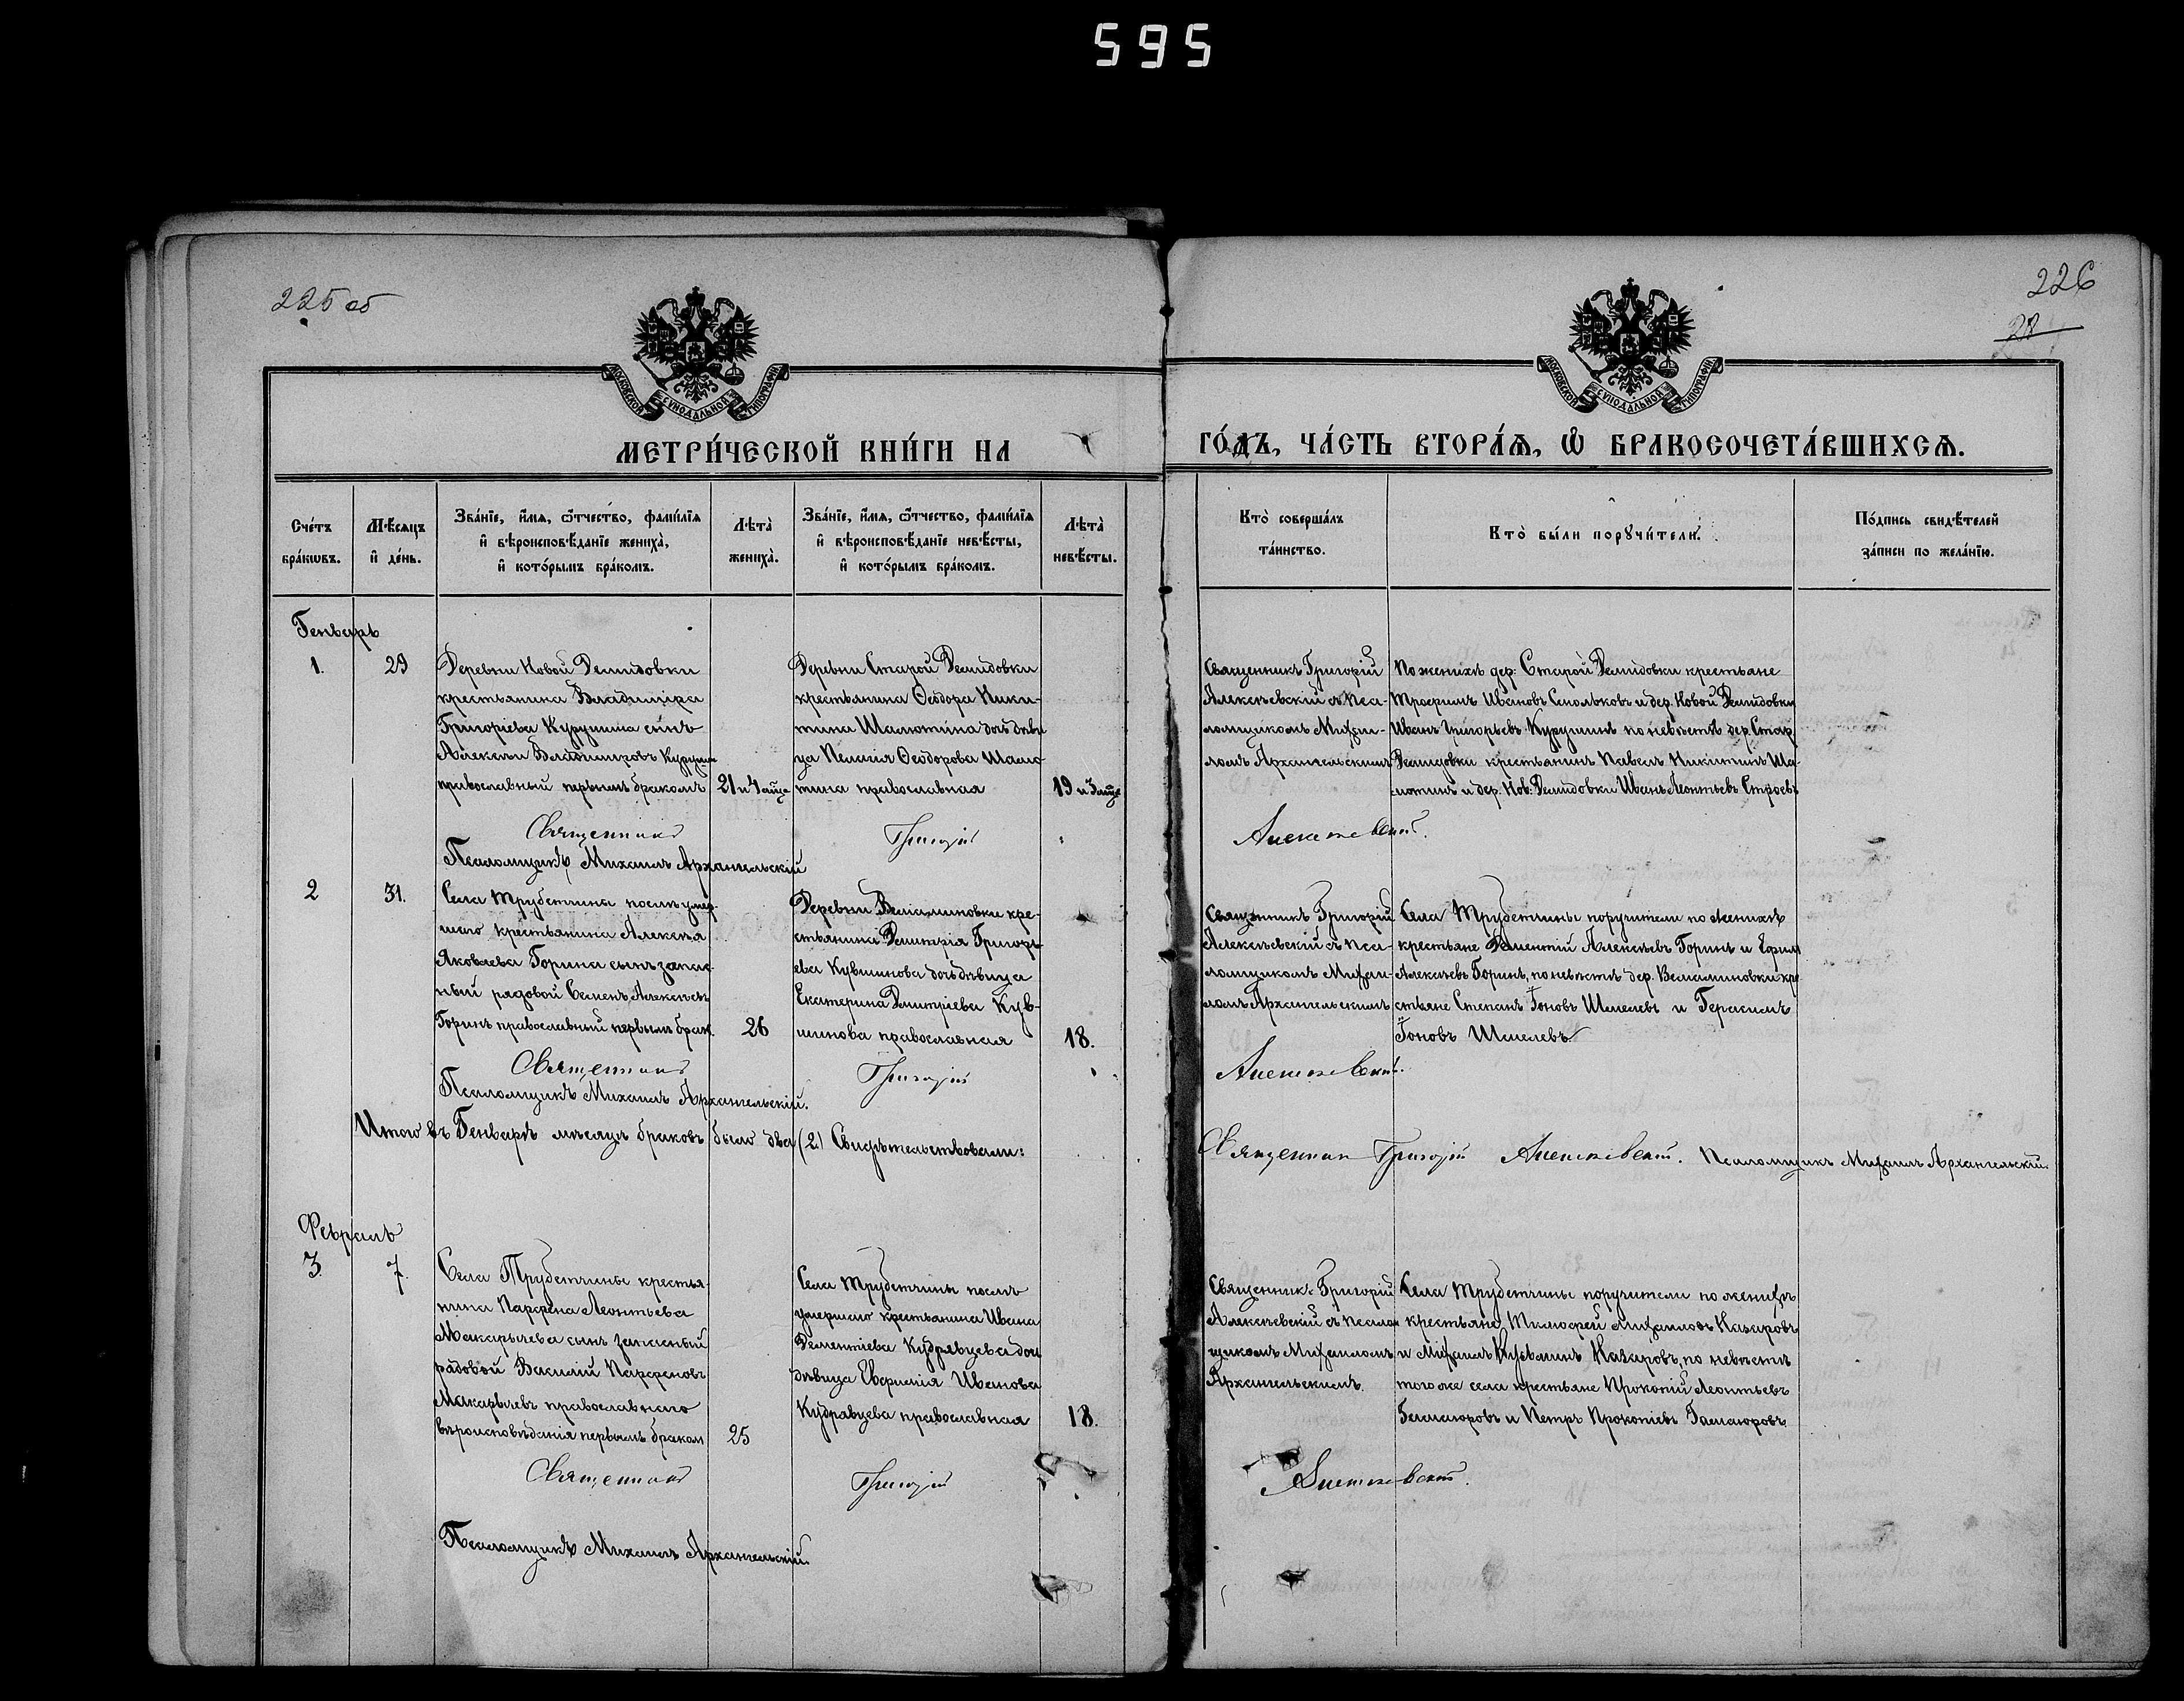 595
225 об
226
28
МОСКОВСКОЙ СУНОДАЛЬНОЙ ТИПОГРАФІИ
МОСКОВСКОЙ СУНОДАЛЬНОЙ ТИПОГРАФІИ
МЕТРИ́ЧЕСКОЙ КНИ́ГИ НА
ГО́ДЪ, ЧА́СТЬ ВТОРА́Ѧ, Ѡ БРАКОСОЧЕТА́ВШИХСѦ.
Сче́тъ
бра́кѡвъ.
Мѣ́сяцъ
и҆ де́нь.
Зва́нїе, и҆́мѧ, ѻ҆́тчество, фами́лїѧ
и҆ вѣроисповѣ́данїе жениха̀,
и҆ кото́рымъ бра́комъ.
Лѣта̀
жениха̀.
Зва́нїе, и҆́мѧ, ѻ҆́тчество, фами́лїѧ
и҆ вѣроисповѣ́данїе невѣ́сты,
и҆ кото́рымъ бра́комъ.
Лѣта̀
невѣ́сты.
Кто̀ соверша́лъ
та́инство.
Кто̀ бы́ли порꙋчи́тели.
По́дпись свидѣ́телей
за́писи по жела́нїю.
Генварь
1.
29
Деревни Новой Демидовки
крестьянина Владиміра
Григоріева Курушина сынъ
Алексѣй Владиміровъ Курушин
православный первымъ бракомъ
21 и 4 мѣц.
Деревни Старой Демидовки
крестьянина Ѳеодора Ники-
тина Шалютина дочь дѣви
ца Пелагія Ѳеодорова Шалю-
тина православная
19 и 3 мѣц.
Священникъ Григорій
Алексѣевскій съ пса-
ломщикомъ Михаи-
ломъ Архангельскимъ
По женихѣ дер: Старой Демидовки крестьане
Трофимъ Ивановъ Смольковъ и дер. Новой Демидовки
Иванъ Григорьевъ Курушинъ по невѣстѣ дер. Стар
Демидовки крестьанинъ Павелъ Никитинъ Ша-
лютинъ и дер. Нов: Демидовки Иванъ Леонтьевъ Строевъ
Священникъ
Григорій
Алексѣевскій.
Псаломщикъ Михаилъ Архангельскій
2
31.
Села Трубетчины послѣ умер-
шаго крестьянина Алексѣя
Яковлева Горина сынъ запас-
ный рядовой Семенъ Алексѣевъ
Горинъ православный первымъ брак.
26
Деревни Веліаминовки кре-
стьянина Димитрія Григорь
ева Кувшинова дочь дѣвица
Екатерина Димитріева Кув-
шинова православная
18.
Священникъ Григорій
Алексѣевскій съ пса-
ломщикомъ Михаи-
ломъ Архангельскимъ
Села Трубетчины поручители по женихѣ
крестьане Дементій Алексѣевъ Горинъ и Ефим
Алексѣевъ Горинъ, по невѣстѣ дер. Веліаминовки кре
стьане Степанъ Іоновъ Шмелевъ и Герасимъ
Іоновъ Шмелевъ.
Священникъ
Григорій
Алексѣевскій.
Псаломщикъ Михаилъ Архангельскій.
Итого въ Генварѣ мѣсяцѣ браковъ было два (2.) Свидѣтельствовали:
Священникъ Григорій Алексѣевскій. Псаломщикъ Михаилъ Архангельскій.
Февраль
3.
7.
Села Трубетчины крестья-
нина Парфена Леонтьева
Макарычева сынъ запасный
рядовой Василій Парфеновъ
Макарычевъ православнаго
вѣроисповѣданія первымъ браком
25
Села Трубетчины послѣ
умершаго крестьанина Ивана
Дементіева Кудрявцева доч
дѣвица Евфимія Иванова
Кудрявцева православная
18.
Священникъ Григорій
Алексѣевскій съ псалом
щикомъ Михаиломъ
Архангельскимъ.
Села Трубетчины поручители по женихѣ
крестьане Тимофей Михаиловъ Назаровъ
и Михаилъ Кузьминъ Назаровъ, по невѣстѣ
того же села крестьане Прокопій Леонтьевъ
и Петръ Прокопіевъ
Священникъ
Григорій
Алексѣевскій.
Псаломщикъ Михаилъ Архангельскій.